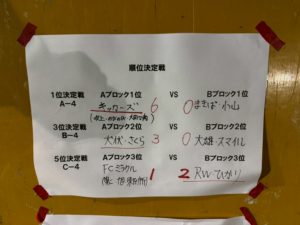 順位決定戦
1位決定戦 Aブロック1位 VS Bブロック1位
A-4 キッカーズ 6 0 まきば・小山
3位決定戦 Aブロック2位 VS Bブロック2位
B-4 犬伏・さくら 3 0 大雄・スマイル
5位決定戦 Aブロック3位 VS Bブロック3位
C-4 FCミラクル 1 2 ひかり